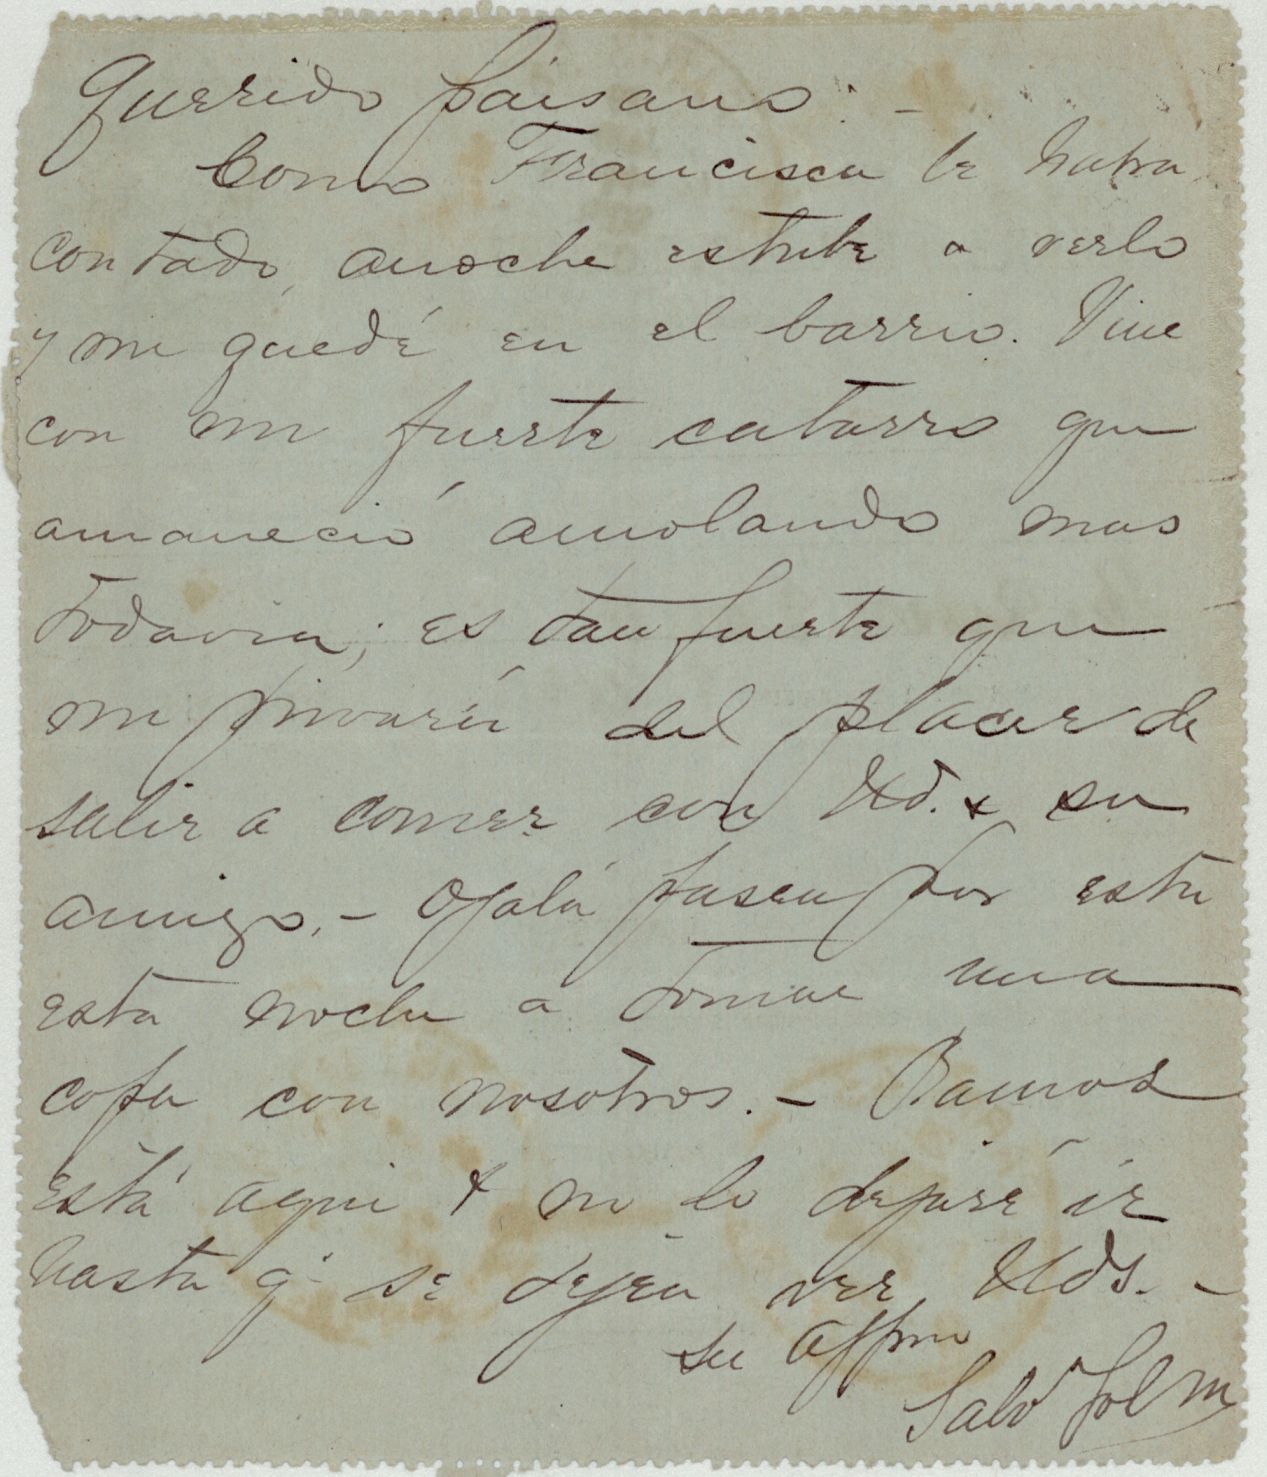 Querido paisano: -
Como Francisca le habra
contado, anoche estube a verlo
y me quedé en el barrio. Vine
con un fuerte catarro que
amaneció amolando mas
todavia; es tan fuerte que
me privará del placer de
salir a comer con Ud. & su
amigo. - Ojalá pasen por esta
esta noche a tomar una
copa con nosotros. - Ramos
está aqui & no lo dejaré ir
hasta q- se dejen ver Uds. -
su affmo
Salv